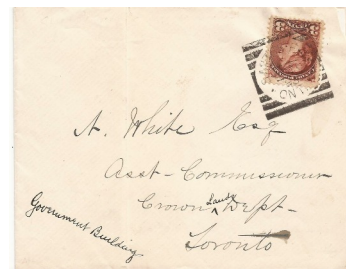 A. White Esq
Asst-Commissioner
Crown Lands Dept-
Toronto
Government Building